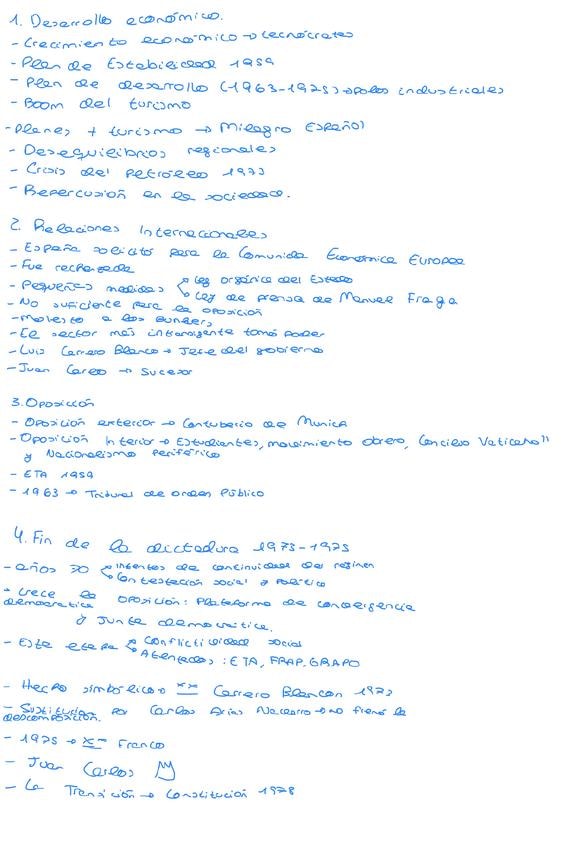 1. Desarrollo económico.
- Crecimiento económico → tecnócratas
- Plan de Estabilidad 1959
- Plan de desarrollo (1963-1975) → polos industriales
- Boom del turismo
- Planes + turismo → Milagro Español
- Desequilibrios regionales
- Crisis del petróleo 1973
- Repercusión en la sociedad.
2. Relaciones Internacionales
- España solicitó para la Comunida Económica Europea
- Fue rechazada
- Pequeñas medidas
Ley orgánica del Estado
Ley de prensa de Manuel Fraga
- No suficiente para la oposición
- Molesto a los bunkers
- El sector más intransigente tomó poder
- Luis Carrero Blanco → Jefe del gobierno
- Juan Carlos → Sucesor
3. Oposición
- Oposición exterior → Contubernio de Munich
- Oposición Interior → Estudiantes, movimiento obrero, Concilio Vaticano II
y Nacionalismo Periférico
- ETA 1959
- 1963 → Tribunal de orden Público
4. Fin de la dictadura 1973-1975
- años 70
Intentos de continuidad del régimen
Contestación social y política
- Crece la oposición: Plataforma de convergencia
democrática
y Junta democrática.
- Esta etapa
Conflictividad social
Atentados: ETA, FRAP, GRAPO
- Hecho simbólico → Carrero Blanco 1973
- Sustituido por Carlos Arias Navarro → no frenó la
descomposición.
- 1975 → Franco
- Juan Carlos
- La Transición → Constitución 1978